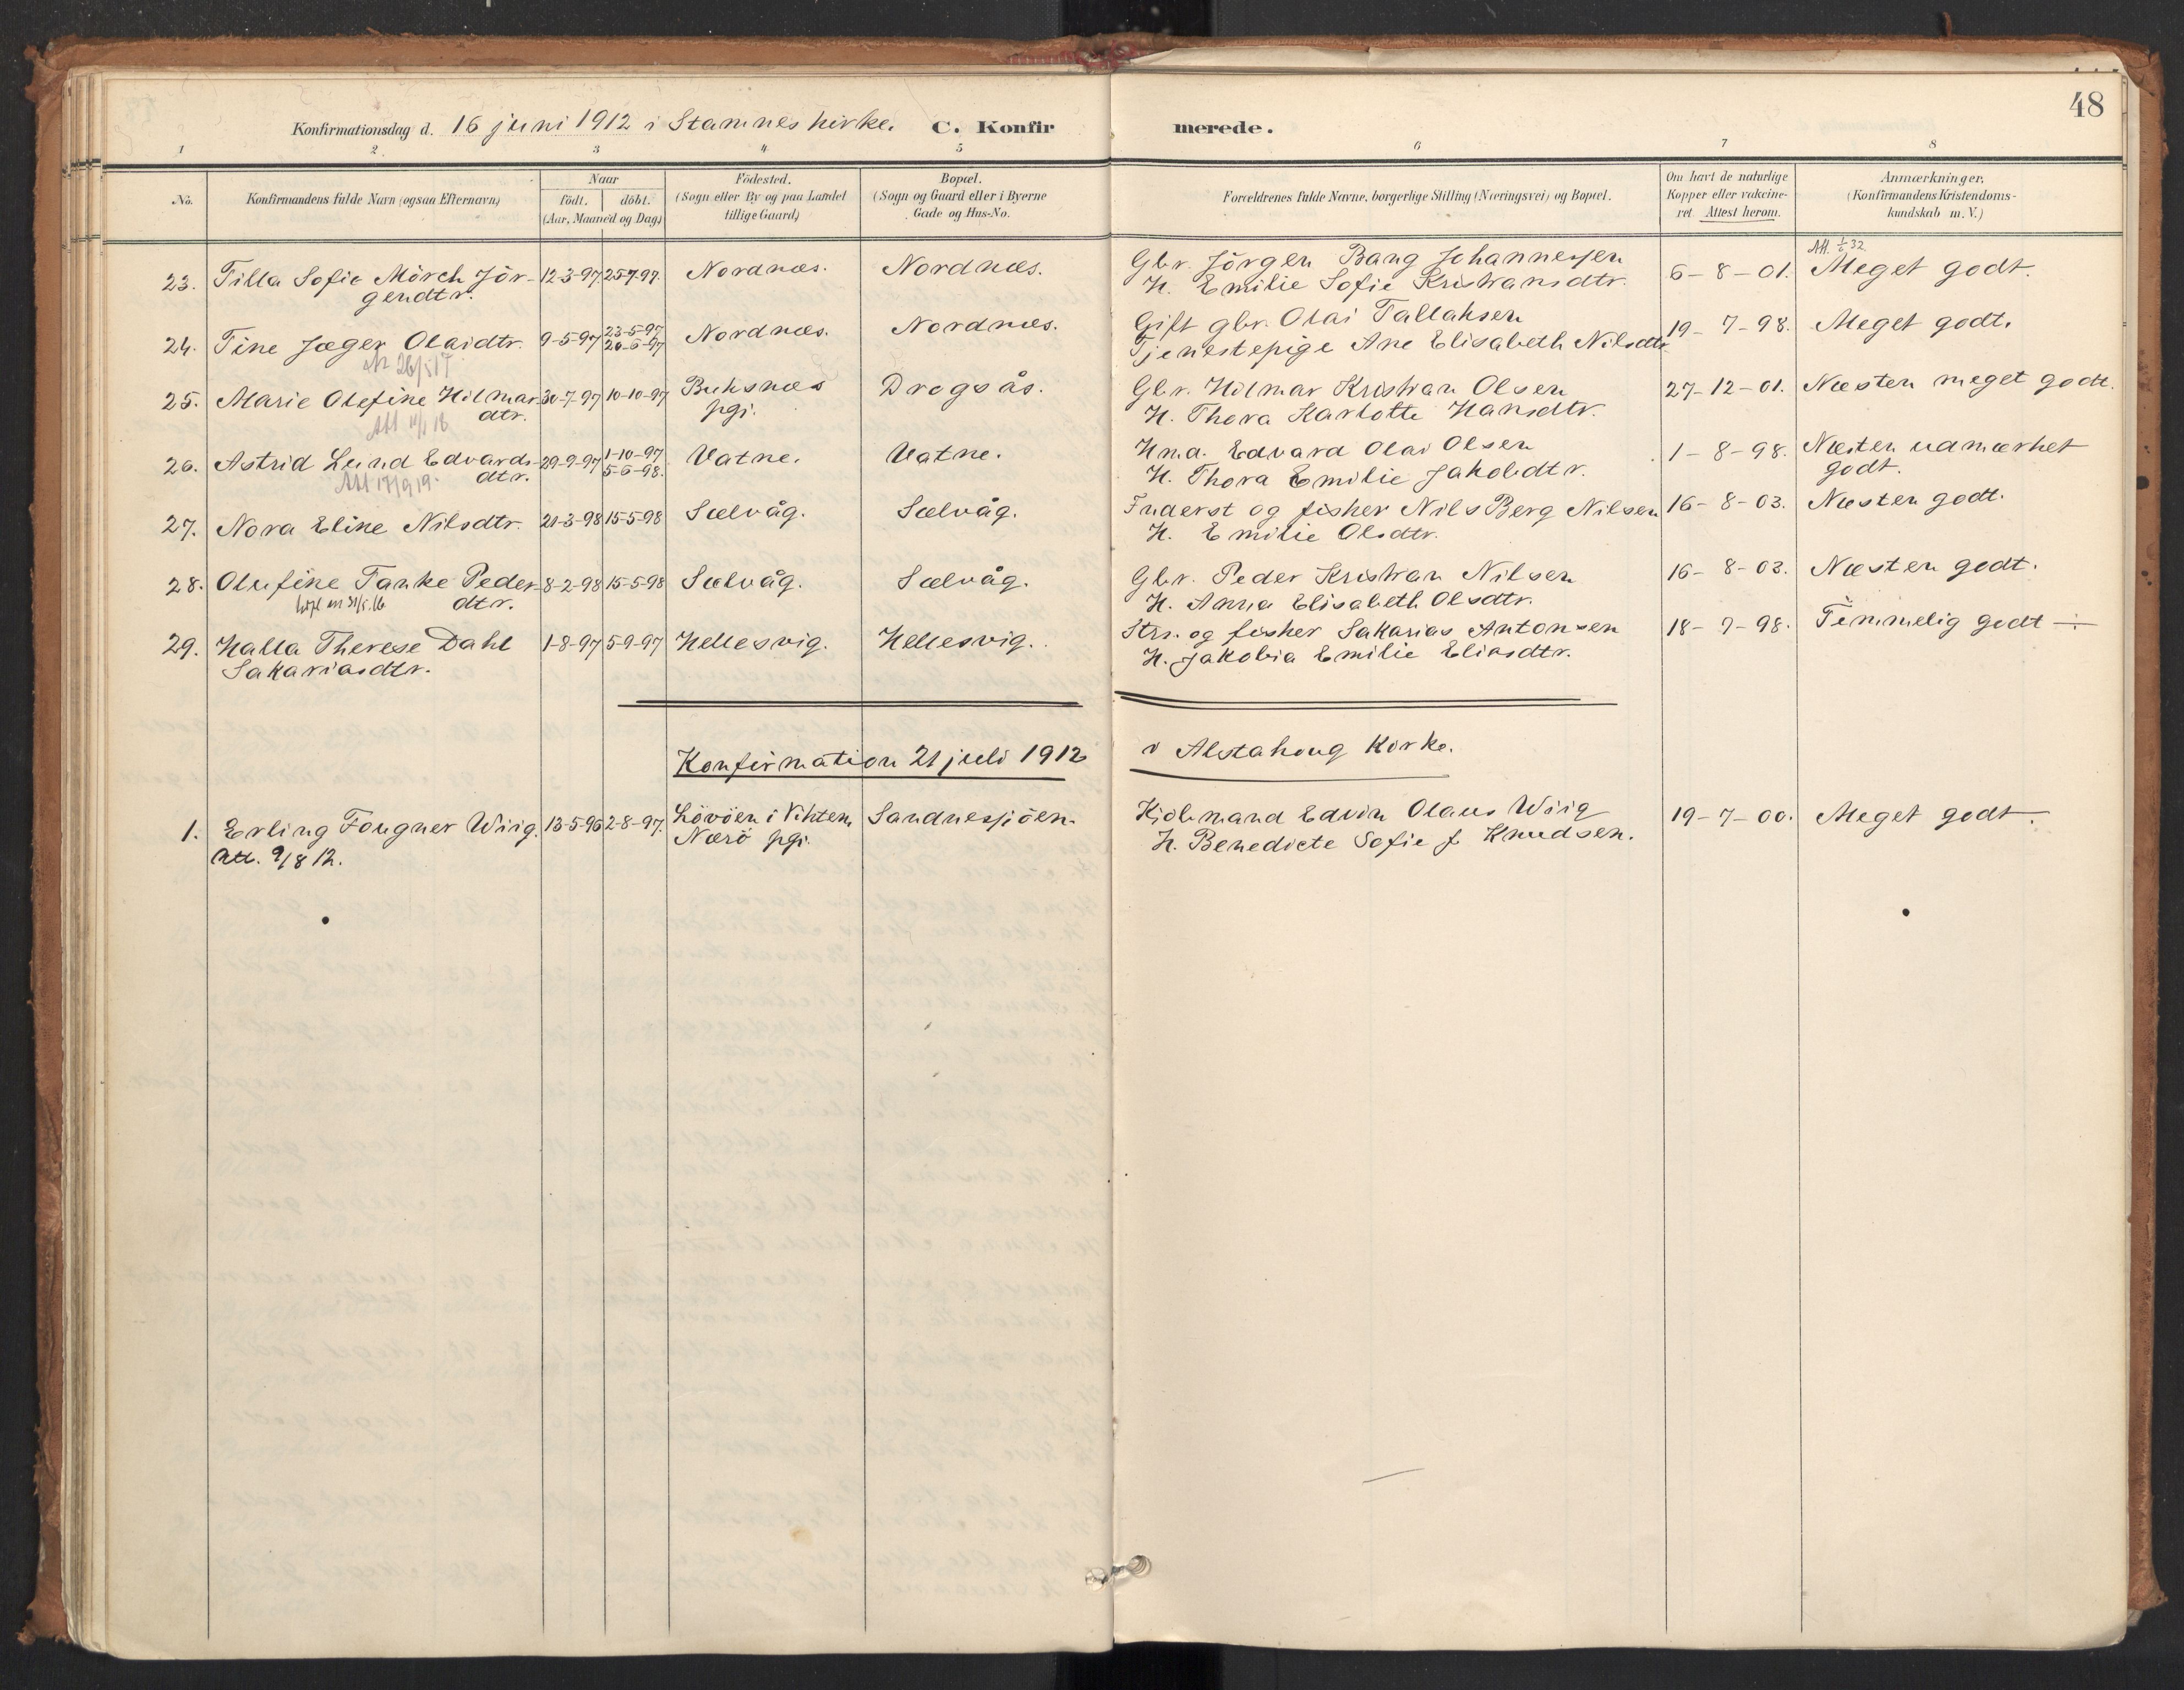 48
Konfirmationsdag d. 16 juni 1912 i Stamnes kirke. C. Konfirmerede.
1 2 3 4 5 6 7 8
No. Konfirmandens fulde Navn (ogsaa Efternavn) Naar födt. döbt. (Aar, Maaned og Dag) Födested. (Sogn eller By og paa Landet tillige Gaard) Bopæl. (Sogn og Gaard eller i Byerne Gade og Hus-No. Forældrenes fulde Navne, borgerlige Stilling (Næringsvei) og Bopæl. Om havt de naturlige Kopper eller vakcineret. Attest herom. Anmærkninger. (Konfirmandens Kristendomskundskab m. V.)
Att. 1/6 32
23. Tilla Sofie Mörch Jör- 12-3-97 25-7-97. Nordnæs. Nordnæs. Gbr. Jörgen Bang Johannesen 6-8-01. Meget godt.
gendtr. H. Emilie Sofie Kristiansdtr.
24. Tine Jæger Olaidtr. 9-5-97 23-5-97 Nordnæs. Nordnæs. Gift gbr. Olai Tallaksen 19-7-98. Meget godt.
20-6-97 Tjenestepige Ane Elisabeth Nilsdtr
25. Marie Olefine Hilmar- 30-7-97 10-10-97 Buksnæs Drogsås. Gbr. Hilmar Kristian Olsen 27-12-01. Næsten meget godt.
dtr. pgj. H. Thora Karlotte Hansdtr.
26. Astrid Lund Edvards- 29-9-97 1-10-97 Vatne. Vatne. Hmd. Edvard Olai Olsen 1-8-98. Næsten udmærket
dtr. 5-6-98. H. Thora Emilie Jakobdtr. godt.
Att 17/9 19.
27. Nora Eline Nilsdtr. 21-3-98 15-5-98 Sælvåg. Sælvåg. Inderst og fisker Nils Berg Nilsen 16-8-03. Næsten godt.
H. Emilie Olsdtr.
28. Olufine Tanke Peder- 8-2-98 15-5-98 Sælvåg. Sælvåg. Gbr. Peder Kristian Nilsen 16-8-03. Næsten godt.
dtr. H. Anna Elisabeth Olsdtr.
29. Halla Therese Dahl 1-8-97 5-9-97 Hellesvig. Hellesvig. Strs. og fisker Sakarias Antonsen 18-7-98. Temmelig godt ÷
Sakariasdtr. H. Jakobia Emilie Eliasdtr.
Konfirmation 21 juli 1912 i Alstahoug Kirke.
1. Erling Fougner Wiig. 13-5-96 2-8-97. Lövöen i Vikten, Sandnessjöen. Kjöbmand Edvin Olaus Wiig 19-7-00. Meget godt.
Att. 9/8 12. Nærö pgj. H. Benedicte Sofie f. Knudsen.